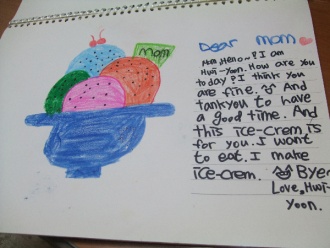 mom
Dear Mom
Mom, Hello~? I am
Hwi-Yoon. How are you
today? I think you
are fine. And
tankyou to have
a good time. And
this ice-crem is
for you. I want
to eat. I make
ice-crem. Bye
Love, Hwi-
Yoon.